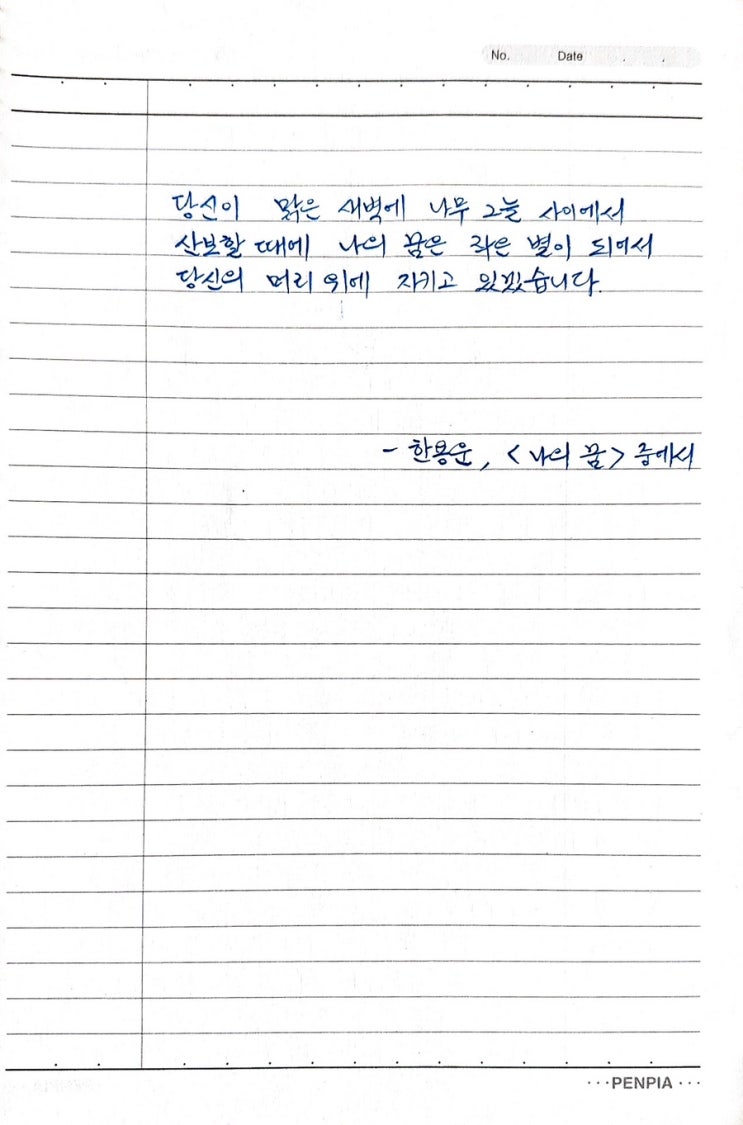 No. Date
당신이 맑은 새벽에 나무 그늘 사이에서
산보할 때에 나의 꿈은 작은 별이 되어서
당신의 머리 위에 지키고 있겠습니다.
- 한용운, <나의 꿈> 중에서
···PENPIA···